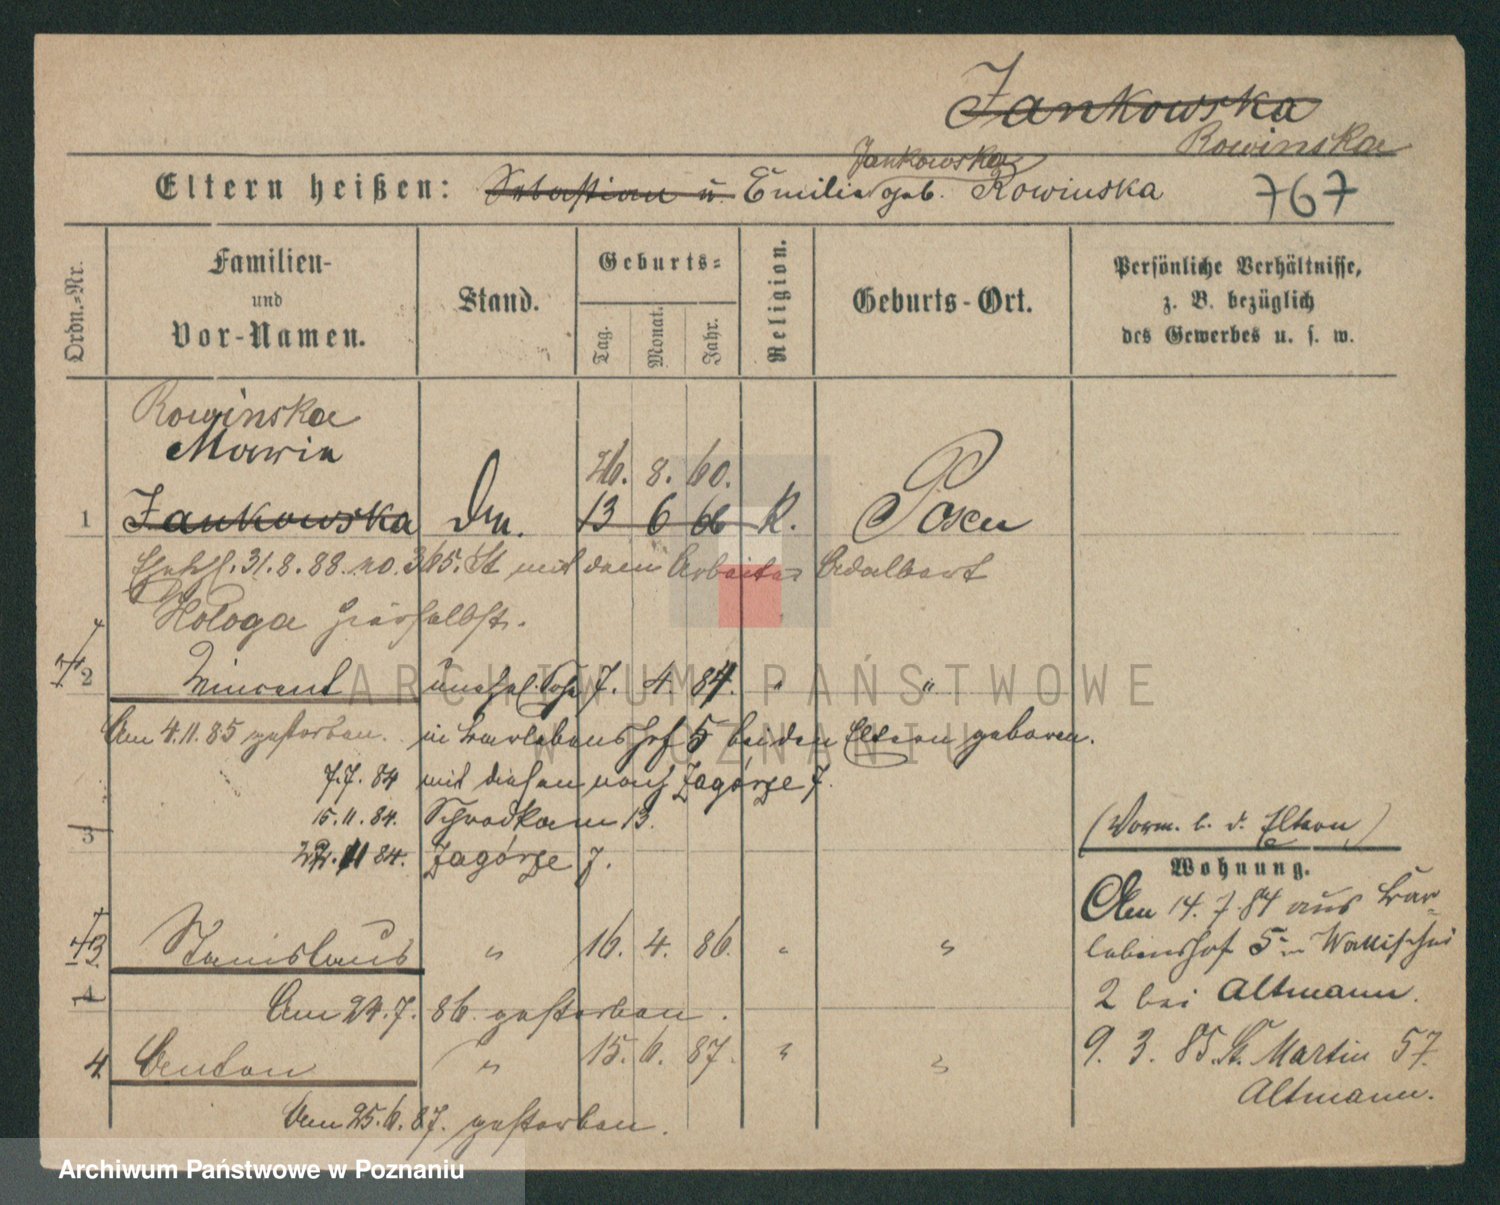 Jankowska
Rowinska
Jankowska
Eltern heißen: Sebastian u. Emilia geb. Rowinska 767
Ordn.-Nr.
Familien- und Vor-Namen.
Stand.
Geburts-
Tag. Monat. Jahr.
Religion.
Geburts-Ort.
Persönliche Verhältnisse, z. B. bezüglich des Gewerbes u. s. w.
Rowinska
Maria
26. 8. 60.
1 Jankowska 13 6 66 K. Posen
31.8.88 no. 365. St mit dem Arbeiter Adalbert
Hologa hierselbst.
2 Vincent unehel. Sohn 7. 4. 84. " "
Am 4.11.85 gestorben. in Barlebenshof 5 bei den Eltern geboren.
7.7.84 mit diesen nach Zagórze 7.
15.11.84. Schrodkam 13.
3
22. 11 84. Zagórze 7.
(Vorm. b. d. Eltern)
Wohnung.
Am 14.7.84 aus Bar-
lebenshof 5 in Wallischei
2 bei Altmann.
9. 3. 85. St. Martin 57
Altmann.
3 Stanislaus " 16. 4. 86. " "
4
Am 24.7.86 gestorben.
4 Anton " 15. 6. 87. " "
Am 25.6.87. gestorben.
ARCHIWUM PAŃSTWOWE
W POZNANIU
Archiwum Państwowe w Poznaniu